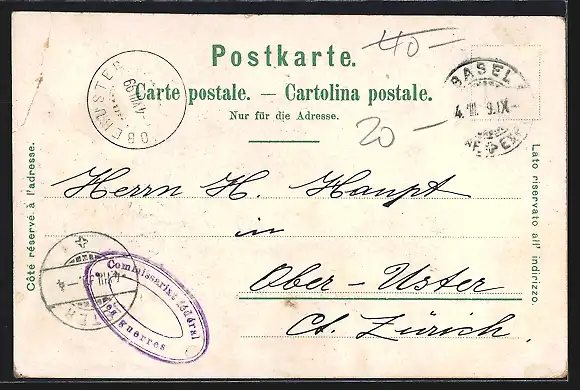 Postkarte.
40-
Carte postale. — Cartolina postale.
Nur für die Adresse.
20-
OBERUSTER
BASEL
4. III. 9. IX
Côté réservé à l'adresse.
Lato riservato all' indirizzo.
Herrn H. Haupt
in
Ober-Uster
Ct. Zürich.
Commissariat fédéral
des guerres